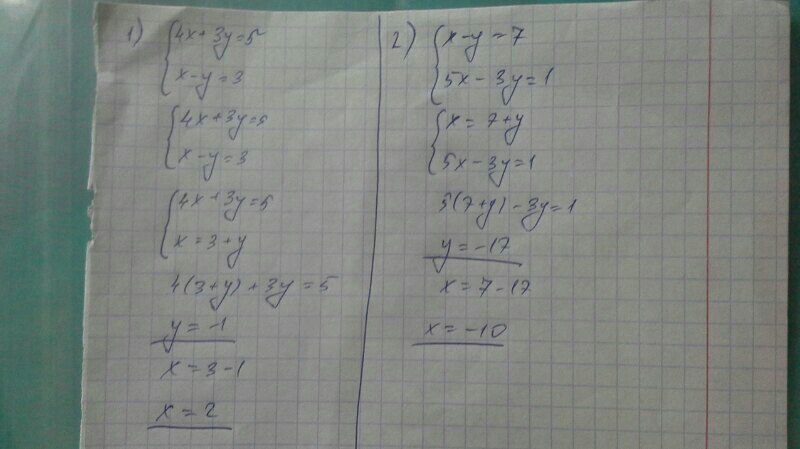 1) 4x+3y=5
x-y=3
4x+3y=5
x-y=3
4x+3y=5
x=3+y
4(3+y)+3y=5
y=-1
x=3-1
x=2
2) x-y=7
5x-3y=1
x=7+y
5x-3y=1
5(7+y)-3y=1
y=-17
x=7-17
x=-10